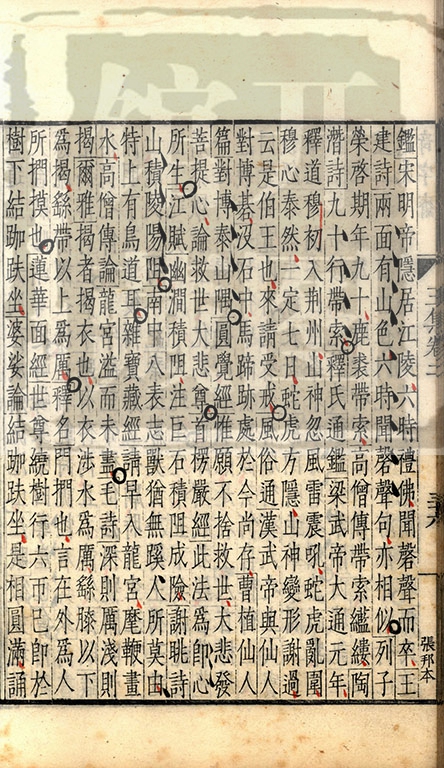 鑑宋明帝隱居江陵六時禮佛聞磬聲而卒王
建詩兩面有山色六時聞磬聲句亦相似列子
榮啓期年九十鹿裘帶索高僧傳帶索縕縷陶
潛詩九十行帶索釋氏通鑑梁武帝大通元年
釋道穆初入荆州山神忽風雷震吼蛇虎亂圍
穆心泰然一定七日蛇虎方隱山神變形謝過
云是伯王也來請受戒風俗通漢武帝與仙人
對博碁没石中馬蹄跡處於今尚存曹植仙人
篇對博泰山隅圓覺經惟願不捨救世大悲發
菩提心論救世大悲尊者楞嚴經此法爲即心
所生江賦幽澗積阻注巨石積阻成險謝眺詩
山積陵陽阻南中八表志獸猶無蹊人所莫由
特上有鳥道耳雜寶藏經請早入龍宮麾鞭畫
水高僧傳論龍宮溢而未盡毛詩深則厲淺則
揭爾雅揭者揭衣也以衣涉水爲厲繇膝以下
爲揭繇帶以上爲厲釋名門捫也言在外爲人
所捫摸也蓮華面經世尊繞樹行六帀已即於
樹下結跏趺坐婆娑論結跏趺坐是相圓滿誦
張邦本